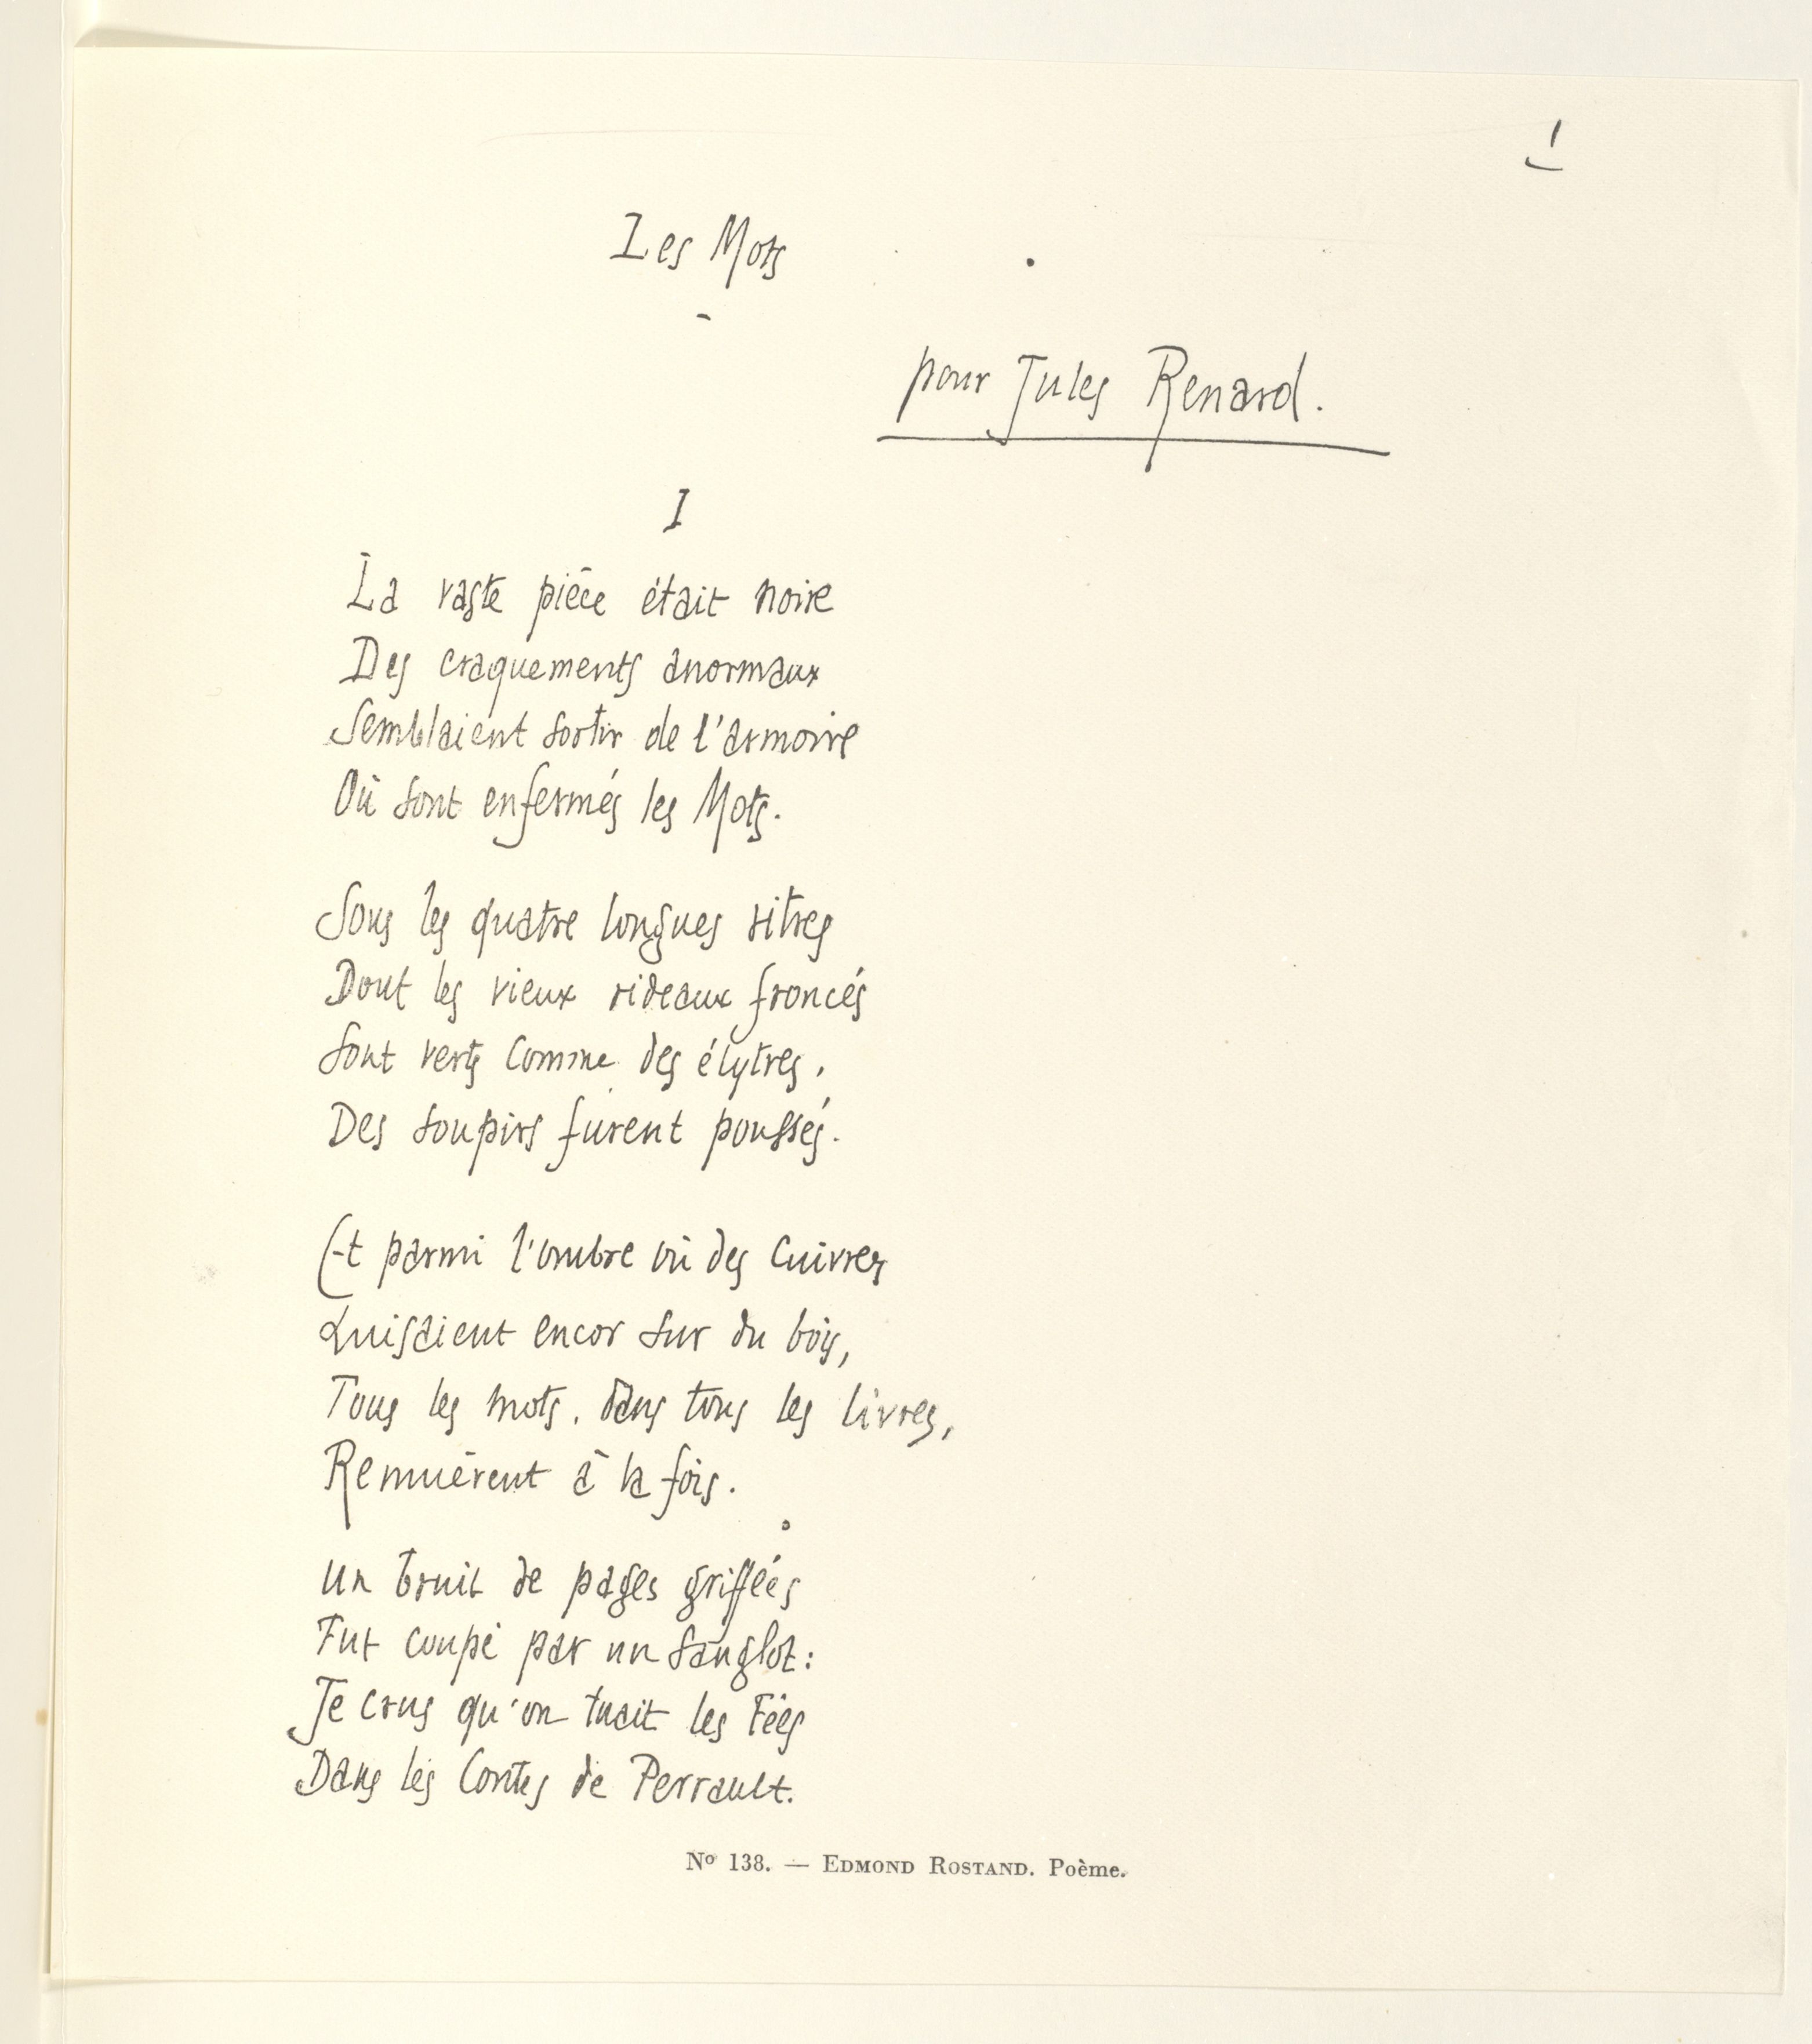 1
Les Mots
pour Jules Renard.
I
La vaste pièce était noire
Des craquements anormaux
Semblaient sortir de l'armoire
Où sont enfermés les Mots.
Sous les quatre longues vitres
Dont les vieux rideaux froncés
Sont verts comme des élytres,
Des soupirs furent poussés.
Et parmi l'ombre où des cuivres
Luisaient encor sur du bois,
Tous les mots, dans tous les livres,
Remuèrent à la fois.
Un bruit de pages griffées
Fut coupé par un sanglot:
Je crus qu'on tuait les Fées
Dans les Contes de Perrault.
Nº 138. — EDMOND ROSTAND. Poème.